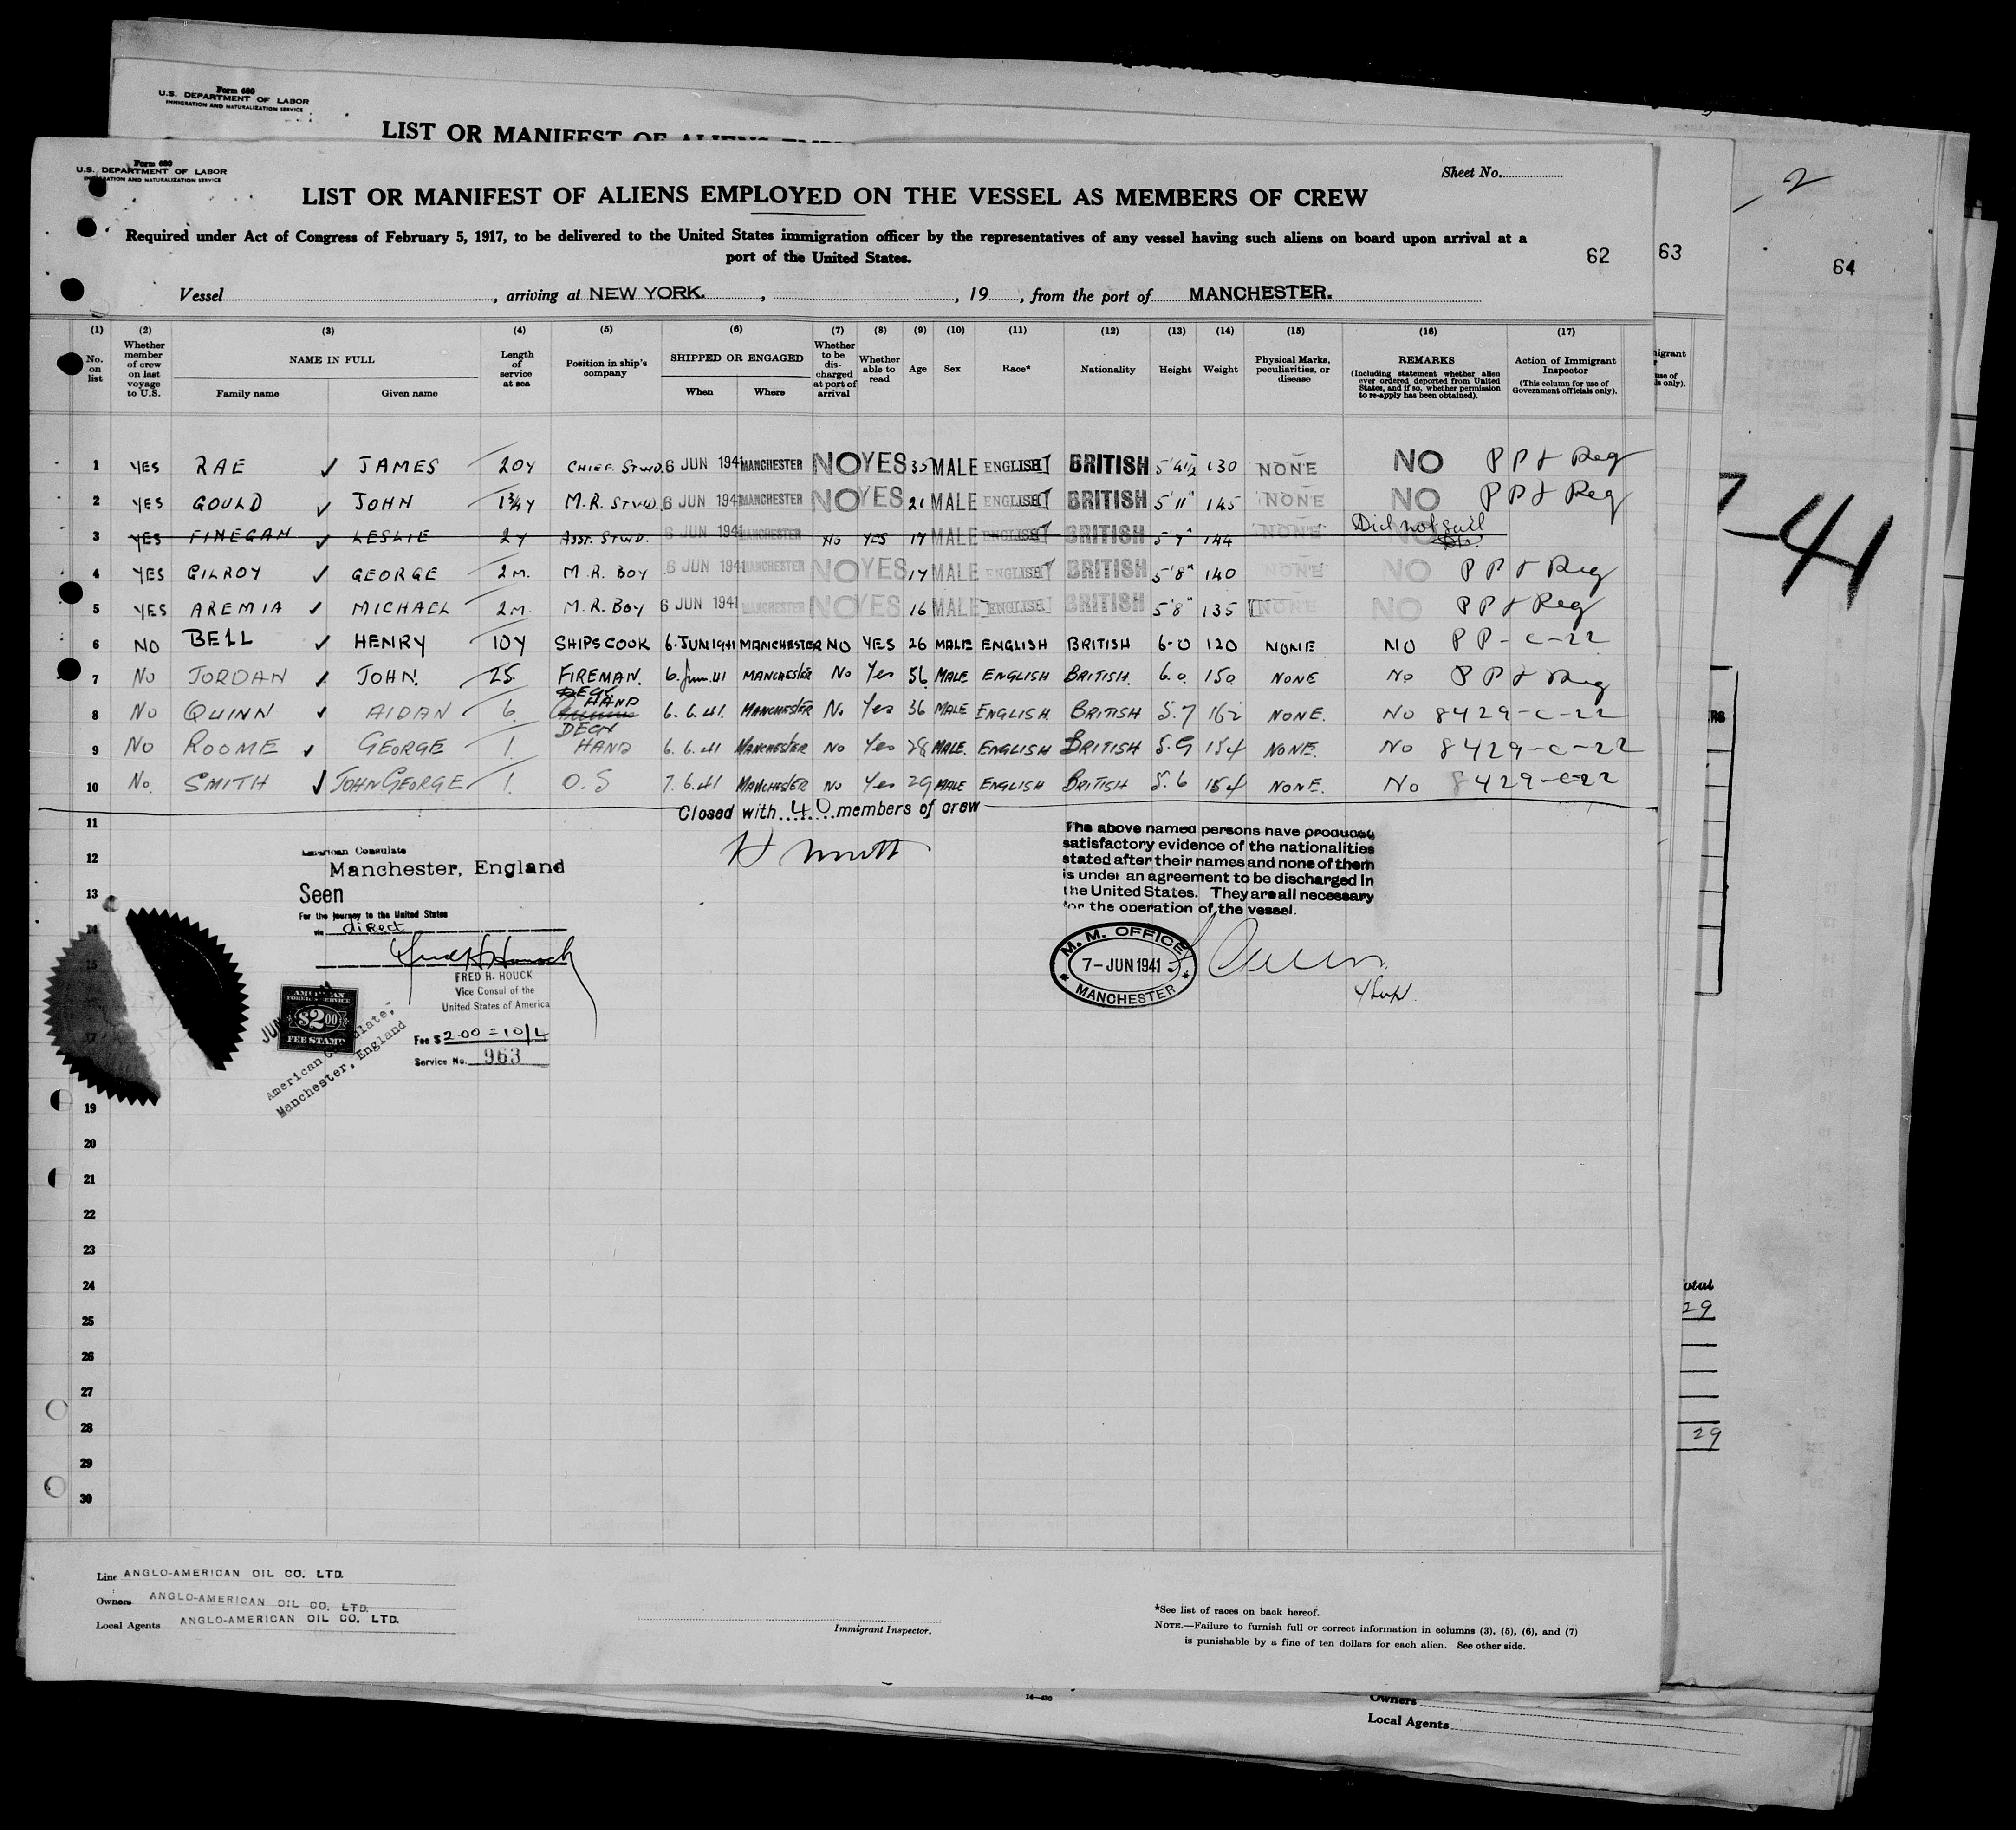 Form 680
U.S. DEPARTMENT OF LABOR
IMMIGRATION AND NATURALIZATION SERVICE
LIST OR MANIFEST OF ALIENS
2
Form 680
U.S. DEPARTMENT OF LABOR
IMMIGRATION AND NATURALIZATION SERVICE
Sheet No.
LIST OR MANIFEST OF ALIENS EMPLOYED ON THE VESSEL AS MEMBERS OF CREW
Required under Act of Congress of February 5, 1917, to be delivered to the United States immigration officer by the representatives of any vessel having such aliens on board upon arrival at a
port of the United States.
62 63 64
Vessel , arriving at NEW YORK. , , 19 , from the port of MANCHESTER.
(1) (2) (3) (4) (5) (6) (7) (8) (9) (10) (11) (12) (13) (14) (15) (16) (17)
No. on list
Whether member of crew on last voyage to U.S.
NAME IN FULL
Family name Given name
Length of service at sea
Position in ship's company
SHIPPED OR ENGAGED
When Where
Whether to be discharged at port of arrival
Whether able to read
Age Sex Race* Nationality Height Weight
Physical Marks, peculiarities, or disease
REMARKS
(Including statement whether alien ever ordered deported from United States, and if so, whether permission to re-apply has been obtained).
Action of Immigrant Inspector
(This column for use of Government officials only).
1 YES RAE ✓ JAMES 20Y CHIEF STWD. 6 JUN 1941 MANCHESTER NO YES 35 MALE ENGLISH BRITISH 5'4½ 130 NONE NO P P & Reg
2 YES GOULD ✓ JOHN 1¾Y M.R. STWD. 6 JUN 1941 MANCHESTER NO YES 21 MALE ENGLISH BRITISH 5'11" 145 NONE NO P P & Reg
3 YES FINEGAN ✓ LESLIE 2Y ASST. STWD. 6 JUN 1941 MANCHESTER NO YES 17 MALE ENGLISH BRITISH 5'7" 144 NONE NO Did not sail
4 YES GILROY ✓ GEORGE 2M. M.R. BOY 6 JUN 1941 MANCHESTER NO YES 17 MALE ENGLISH BRITISH 5'8" 140 NONE NO P P & Reg
5 YES AREMIA ✓ MICHAEL 2M. M.R. BOY 6 JUN 1941 MANCHESTER NO YES 16 MALE ENGLISH BRITISH 5'8" 135 NONE NO P P & Reg
6 NO BELL ✓ HENRY 10Y SHIPS COOK 6.JUN 1941 MANCHESTER NO YES 26 MALE ENGLISH BRITISH 6-0 120 NONE NO P P - C-22
7 NO JORDAN ✓ JOHN. 25 FIREMAN. 6.Jun.41 MANCHESTER No Yes 56 MALE ENGLISH BRITISH. 6.0. 150 NONE No P P & Reg
8 NO QUINN ✓ AIDAN 6. DECK HAND 6.6.41. MANCHESTER No Yes 36 MALE ENGLISH. BRITISH 5.7 162 NONE. No 8429-C-22
9 NO ROOME ✓ GEORGE 1. DECK HAND 6.6.41 MANCHESTER No Yes 28 MALE. ENGLISH BRITISH 5.9 154 NONE. No 8429-C-22
10 No. SMITH ✓ JOHN GEORGE 1. O.S 7.6.41 MANCHESTER No Yes 29 MALE ENGLISH BRITISH 5.6 154 NONE. No 8429-C-22
Closed with 40 members of crew
11
12
13
14
15
17
19
20
21
22
23
24
25
26
27
28
29
30
American Consulate
Manchester, England
Seen
For the journey to the United States
via direct
Fred H Houck
FRED H. HOUCK
Vice Consul of the
United States of America
Fee $ 2.00 = 10/-
Service No. 963
AMERICAN
FOREIGN SERVICE
$2.00
FEE STAMP
JUN
American Consulate,
Manchester, England
The above named persons have produced
satisfactory evidence of the nationalities
stated after their names and none of them
is under an agreement to be discharged in
the United States. They are all necessary
for the operation of the vessel.
M. M. OFFICE
7-JUN 1941
MANCHESTER
-41
otal
29
29
Line ANGLO-AMERICAN OIL CO. LTD.
Owners ANGLO-AMERICAN OIL CO. LTD.
Local Agents ANGLO-AMERICAN OIL CO. LTD.
Immigrant Inspector.
*See list of races on back hereof.
NOTE.—Failure to furnish full or correct information in columns (3), (5), (6), and (7)
is punishable by a fine of ten dollars for each alien. See other side.
Owners
Local Agents